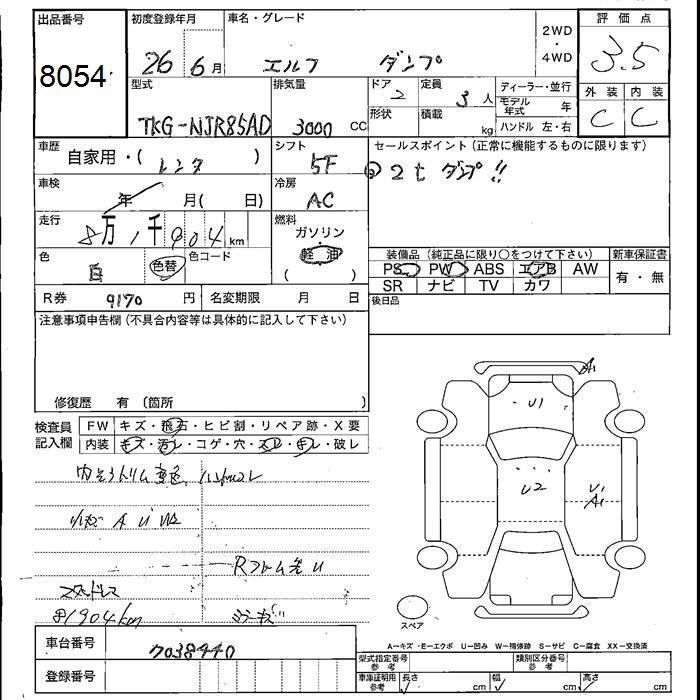 出品番号 初度登録年月 車名・グレード 2WD・4WD 評価点
8054 26 6月 エルフ ダンプ 3.5
型式 排気量 ドア 2 定員 3人 ディーラー・並行 外装 内装
TKG-NJR85AD 3000 CC 形状 積載 kg モデル年式 年 C C
ハンドル 左・右
車歴 自家用・( レンタ ) シフト 5F セールスポイント(正常に機能するものに限ります)
車検 年 月( 日) 冷房 AC ◎2t ダンプ!!
走行 8万1千904km 燃料 ガソリン 軽油 ( )
色 白 色替 色コード 装備品(純正品に限り○をつけて下さい) 新車保証書
PS PW ABS エアB AW 有・無
SR ナビ TV カワ
R券 9170 円 名変期限 月 日 後日品
注意事項申告欄(不具合内容等は具体的に記入して下さい)
修復歴 有 (箇所 )
A1
検査員記入欄 FW キズ・飛石・ヒビ割・リペア跡・X要
内装 キズ・汚レ・コゲ・穴・スレ・キレ・破レ
U1
U2
U1
A1
小キズ A U
Rフレーム先U
81904km
ミラーキズ
スペア
車台番号 7038440
A―キズ ・E―エクボ U―凹み W―補修跡 S―サビ C―腐食 XX―交換済
型式指定番号 参考 類別区分番号 参考
登録番号 車庫証明用 参考 長さ cm 幅 cm 高さ cm